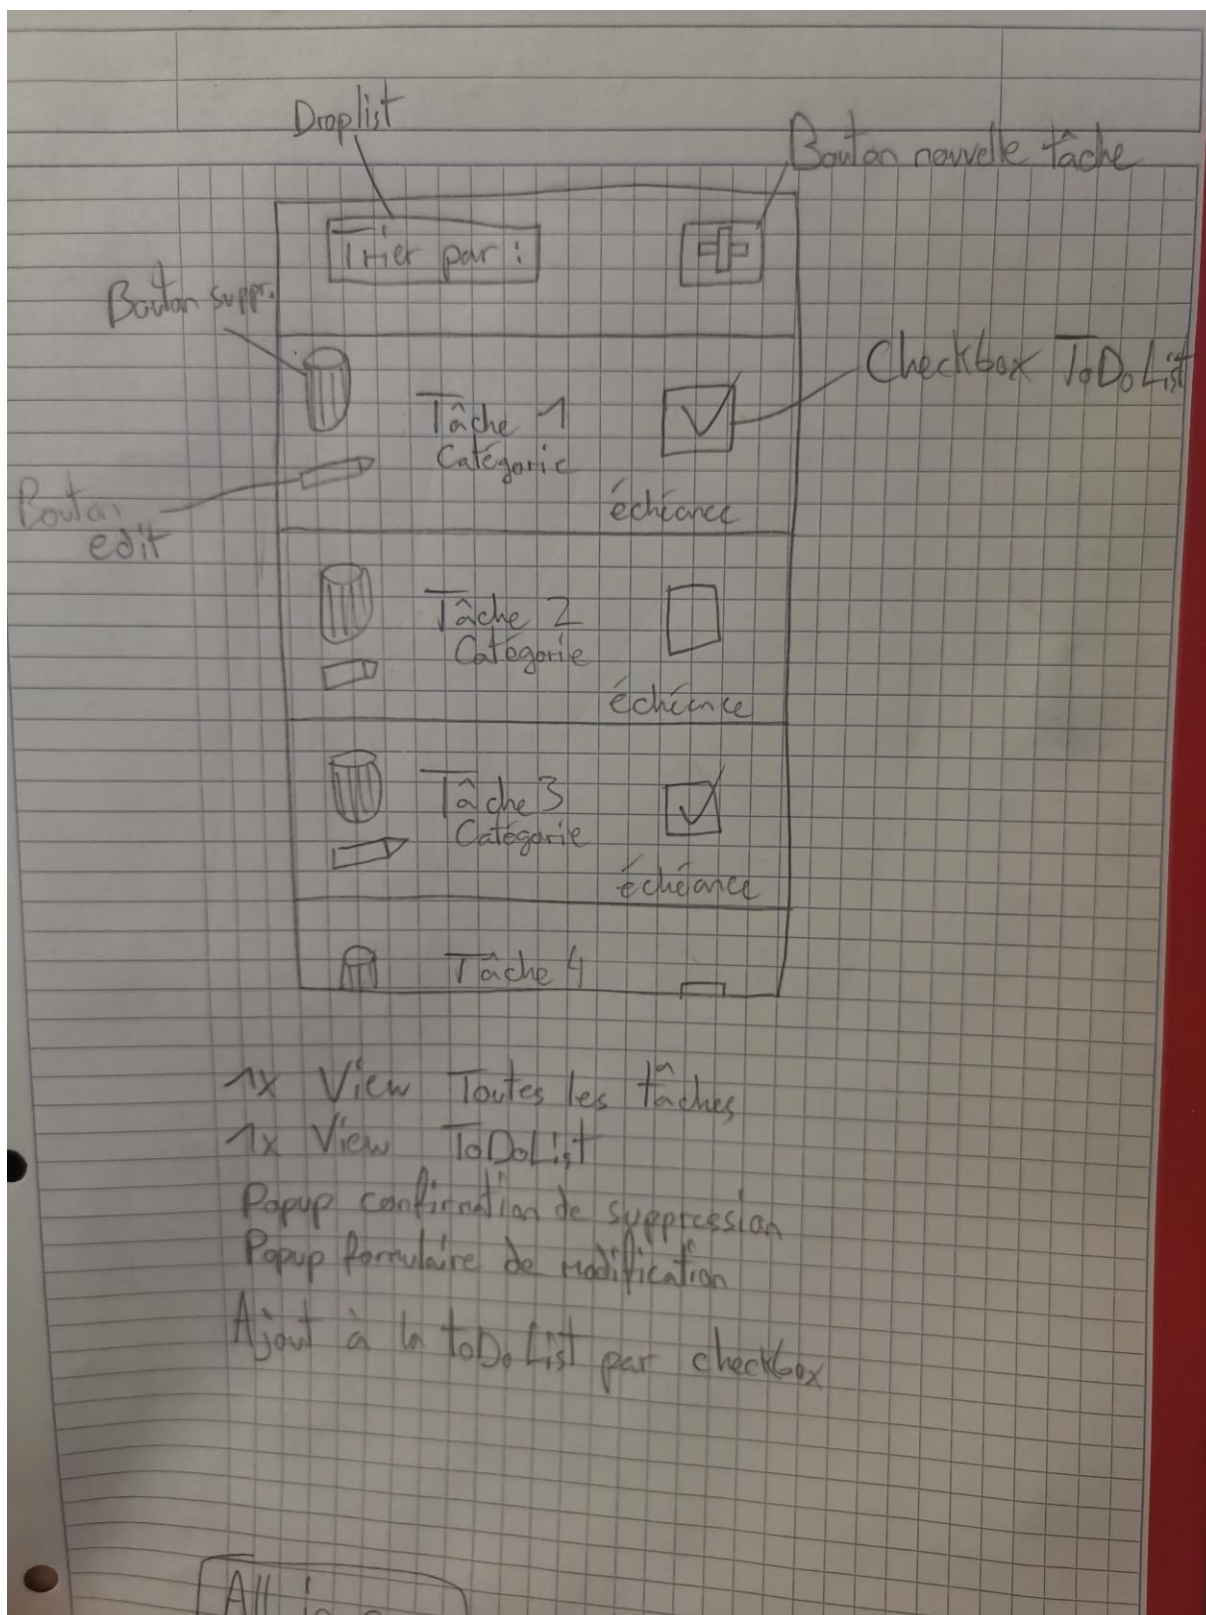 Droplist
Bouton nouvelle tâche
Trier par :
Bouton suppr.
Checkbox ToDoList
Tâche 1
Catégorie
échéance
Bouton
edit
Tâche 2
Catégorie
échéance
Tâche 3
Catégorie
échéance
Tâche 4
1x View Toutes les tâches
1x View ToDoList
Popup confirmation de suppression
Popup formulaire de modification
Ajout à la toDoList par checkbox
All